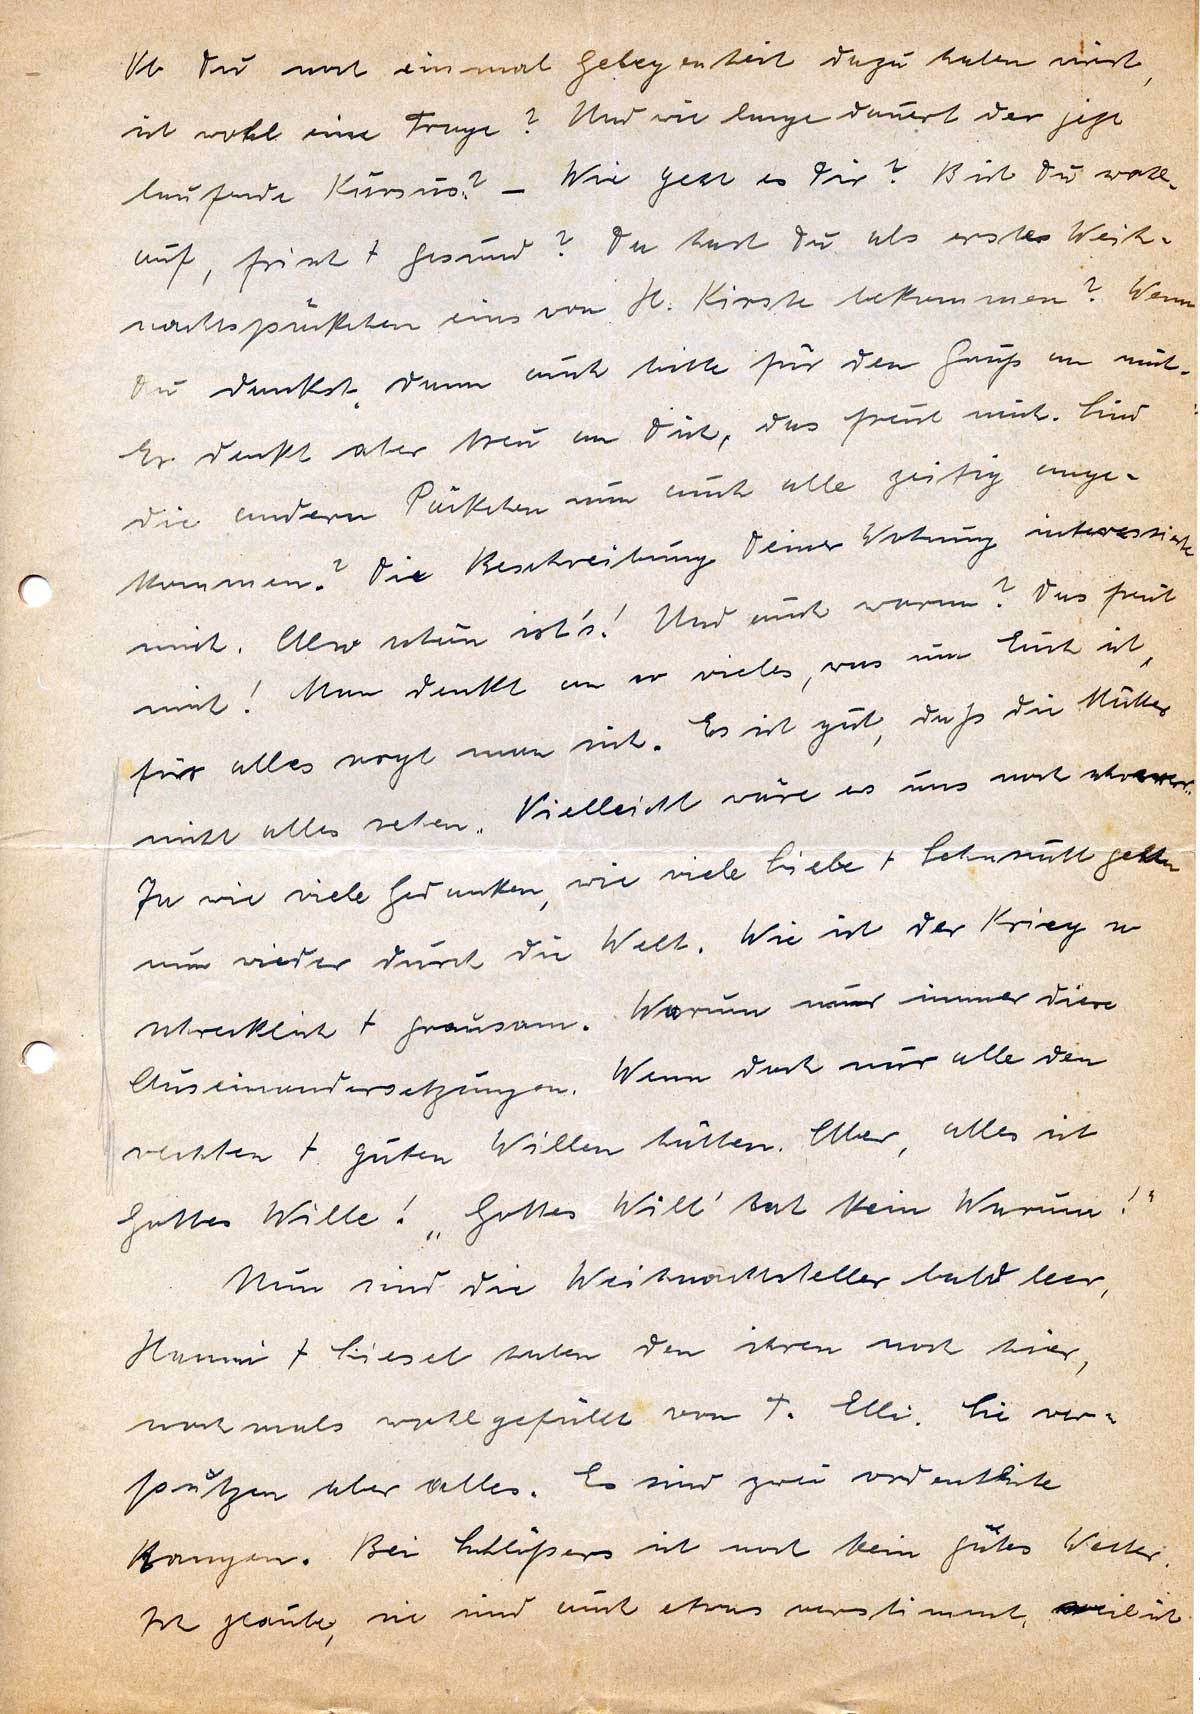 Ob Du noch einmal Gelegenheit dazu haben wirst,
ist wohl eine Frage? Und wie lange dauert der jetzt
laufende Kursus? – Wie geht es Dir? Bist Du wohl-
auf, frisch + gesund? Da hast Du als erstes Weih-
nachtspäckchen eins von H. Kirste bekommen? Wenn
Du dankst, dann auch bitte für den Gruß an mich.
Er denkt aber treu an Dich, das freut mich. Sind
die andern Päckchen nun auch alle zeitig ange-
kommen? Die Beschreibung Deiner Wohnung interessierte
mich. Also schön ist's! Und auch warm? Das freut
mich! Man denkt an so vieles, was um Euch ist,
für alles sorgt man sich. Es ist gut, daß die Mütter
nicht alles sehen. Vielleicht wäre es uns noch schwerer.
Ja wie viele Gedanken, wie viele Liebe + Sehnsucht gehen
nun wieder durch die Welt. Wie ist der Krieg so
schrecklich + grausam. Warum nur immer diese
Auseinandersetzungen. Wenn doch nur alle den
rechten + guten Willen hätten. Aber, alles ist
Gottes Wille! „Gottes Will' hat kein Warum!"
Nun sind die Weihnachtsteller bald leer,
Hanni + Liesel haben den ihren noch hier,
nochmals wohlgefüllt von T. Elli. Sie ver-
putzen aber alles. Es sind zwei ordentliche
Rangen. Bei Schlößers ist noch kein gutes Wetter.
Ich glaube, sie sind auch etwas verstimmt, weil ich